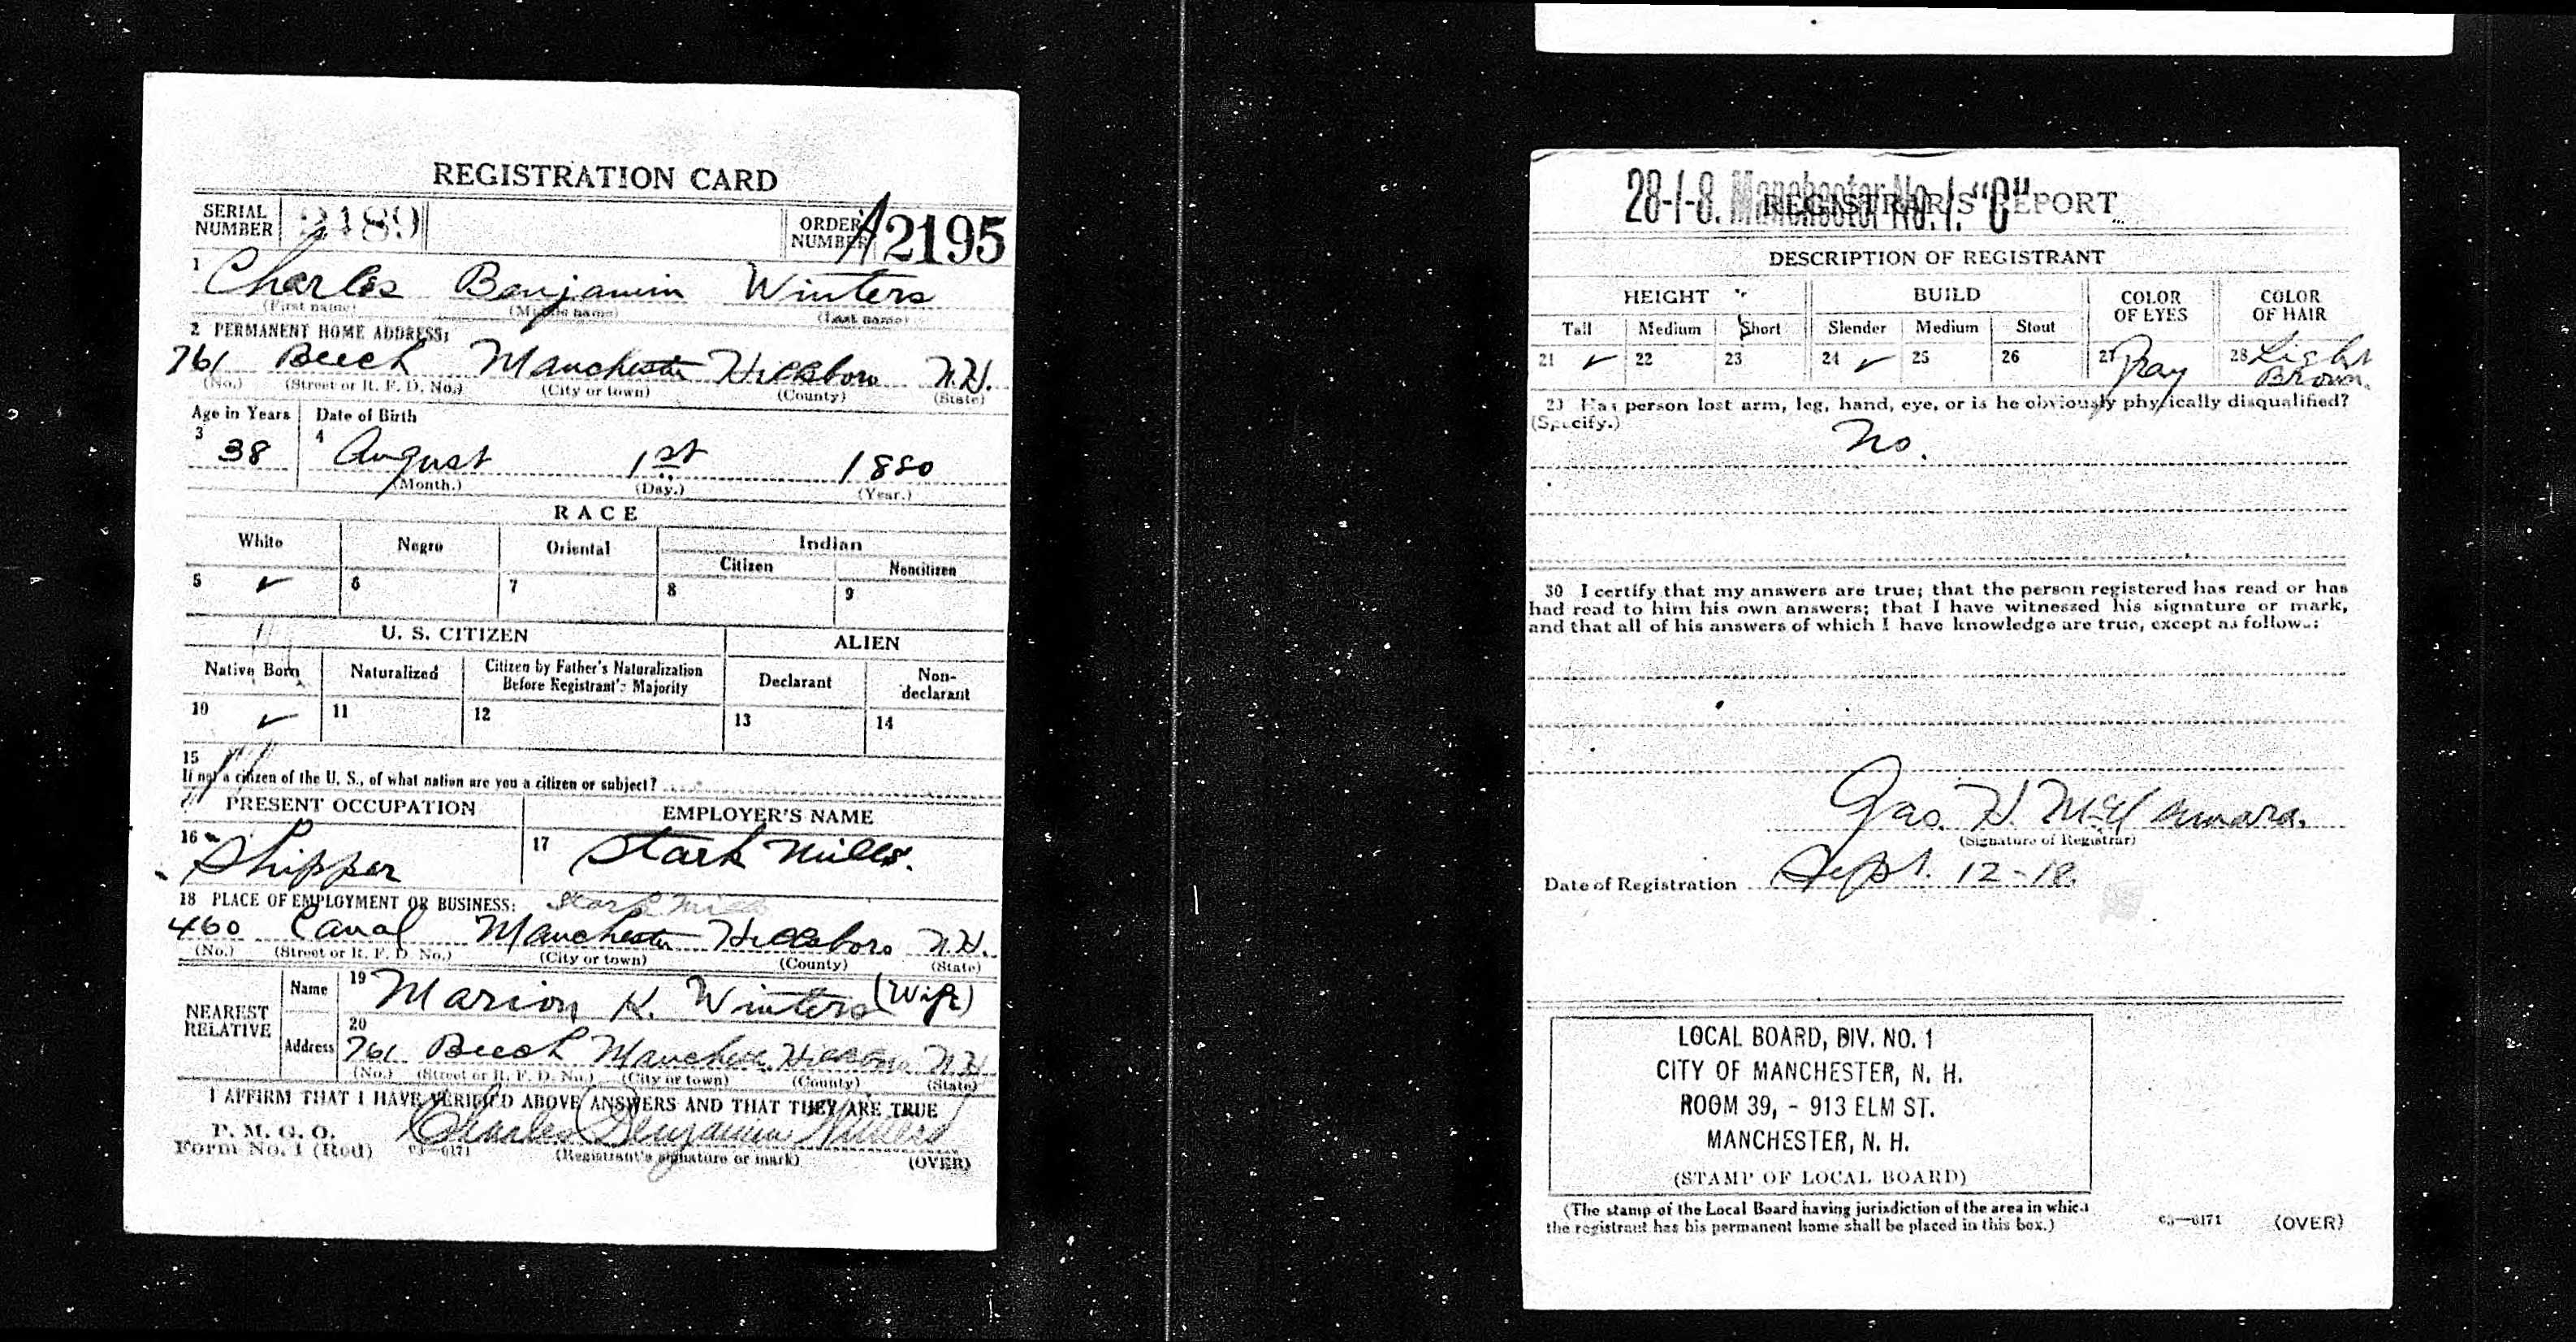 REGISTRATION CARD
SERIAL NUMBER 2189 ORDER NUMBER A2195
1 Charles Benjamin Winters
(First name) (Middle name) (Last name)
2 PERMANENT HOME ADDRESS:
761 Beech Manchester Hillsboro N.H.
(No.) (Street or R. F. D. No.) (City or town) (County) (State)
Age in Years Date of Birth
3 38 4 August 1st 1880
(Month.) (Day.) (Year.)
RACE
White Negro Oriental Indian
Citizen Noncitizen
5 ✓ 6 7 8 9
U. S. CITIZEN ALIEN
Native Born Naturalized Citizen by Father's Naturalization Before Registrant's Majority Declarant Non-declarant
10 ✓ 11 12 13 14
15
If not a citizen of the U. S., of what nation are you a citizen or subject?
PRESENT OCCUPATION EMPLOYER'S NAME
16 Shipper 17 Stark Mills.
18 PLACE OF EMPLOYMENT OR BUSINESS: Stark Mills
460 Canal Manchester Hillsboro N.H.
(No.) (Street or R. F. D. No.) (City or town) (County) (State)
NEAREST RELATIVE Name 19 Marion K. Winters (Wife)
Address 20 761 Beech Manchester Hillsboro N.H
(No.) (Street or R. F. D. No.) (City or town) (County) (State)
I AFFIRM THAT I HAVE VERIFIED ABOVE ANSWERS AND THAT THEY ARE TRUE
P. M. G. O.
Form No. 1 (Red) 03—6171 Charles Benjamin Winters
(Registrant's signature or mark) (OVER)
28-1-8. Manchester No. 1. "C"
REGISTRAR'S REPORT
DESCRIPTION OF REGISTRANT
HEIGHT BUILD COLOR OF EYES COLOR OF HAIR
Tall Medium Short Slender Medium Stout
21 ✓ 22 23 24 ✓ 25 26 27 Gray 28 Light Brown.
29 Has person lost arm, leg, hand, eye, or is he obviously physically disqualified?
(Specify.)
No.
30 I certify that my answers are true; that the person registered has read or has
had read to him his own answers; that I have witnessed his signature or mark,
and that all of his answers of which I have knowledge are true, except as follows:
Jas. H. McNamara.
(Signature of Registrar)
Date of Registration Sept. 12-18.
LOCAL BOARD, DIV. NO. 1
CITY OF MANCHESTER, N. H.
ROOM 39, - 913 ELM ST.
MANCHESTER, N. H.
(STAMP OF LOCAL BOARD)
(The stamp of the Local Board having jurisdiction of the area in which
the registrant has his permanent home shall be placed in this box.)
03—6171 (OVER)